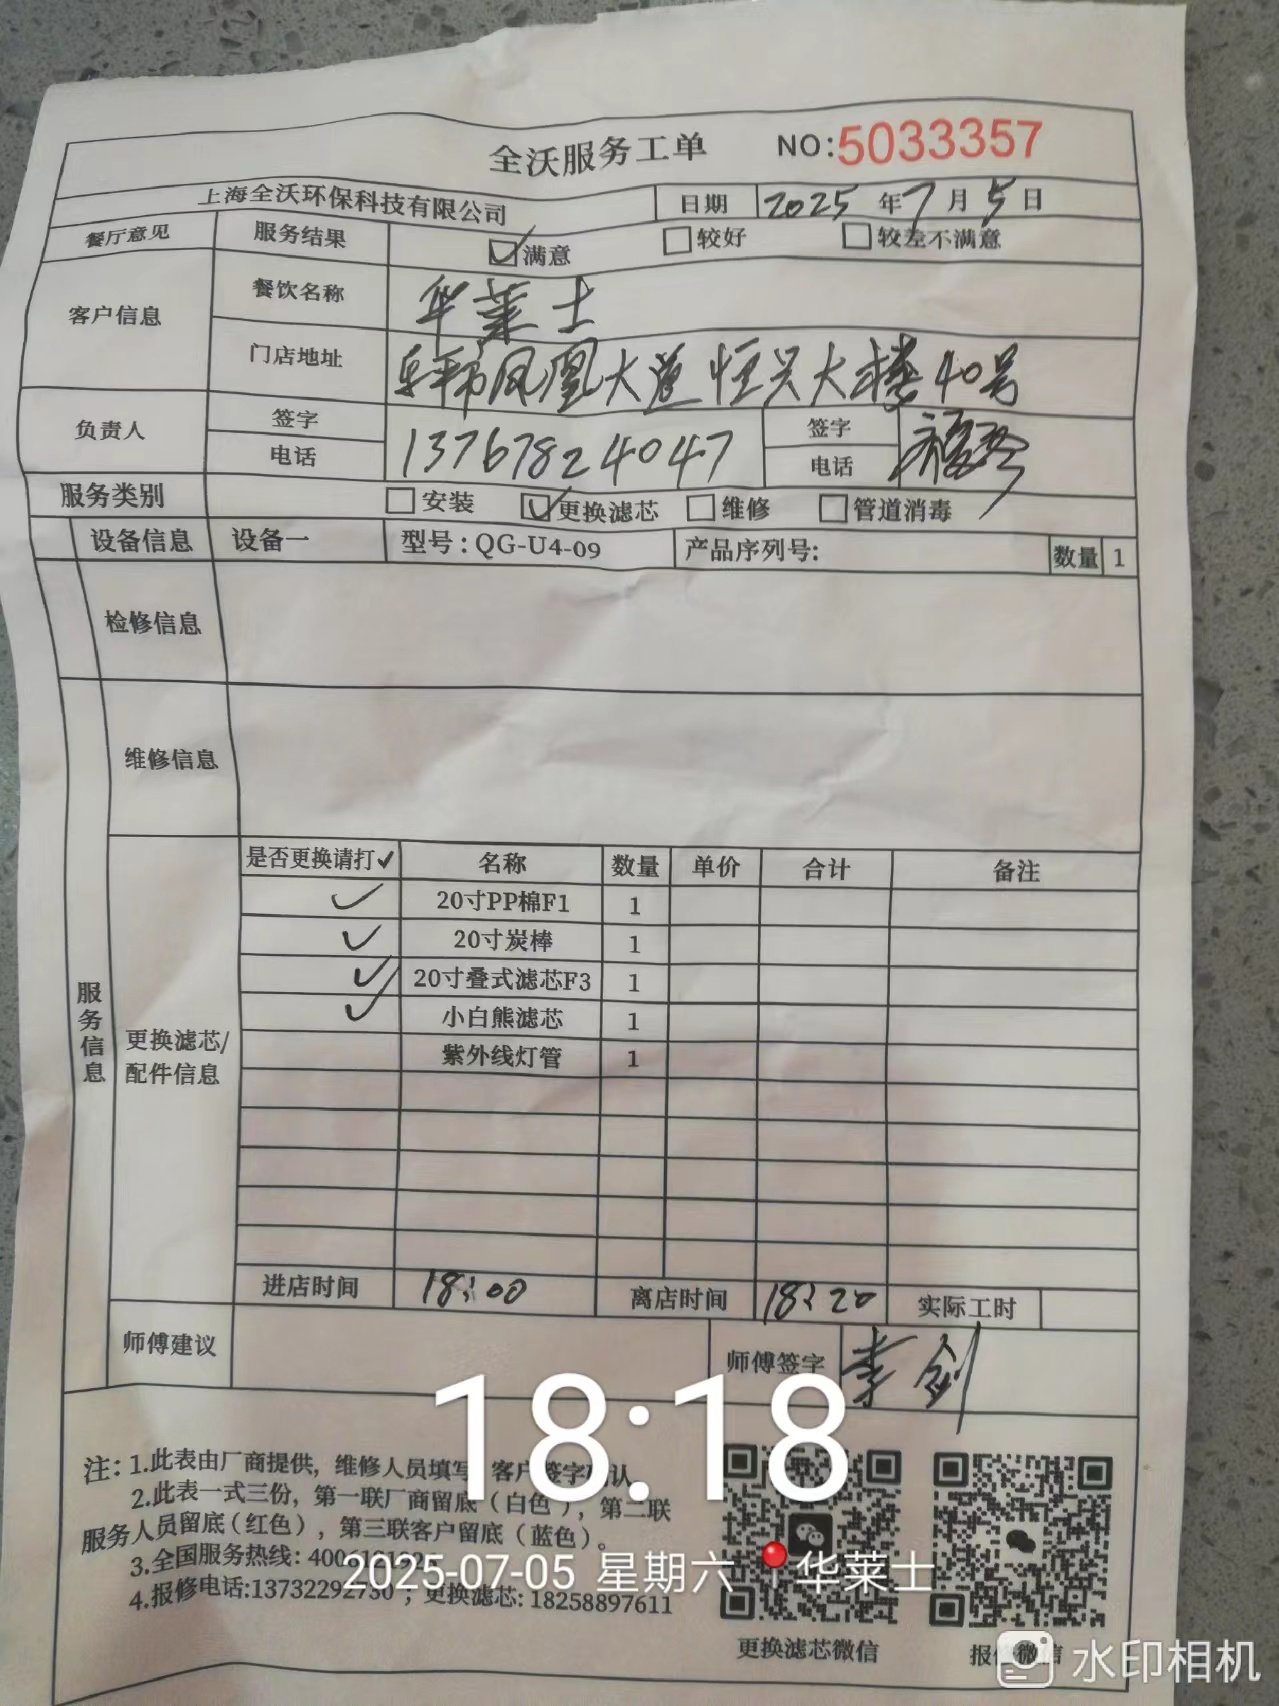 全沃服务工单 NO:5033357
上海全沃环保科技有限公司 日期 2025年7月5日
餐厅意见 服务结果 满意 较好 较差不满意
客户信息 餐饮名称 华莱士
门店地址 乐平市凤凰大道恒兴大楼40号
负责人 签字 签字
电话 13767824047 电话
服务类别 安装 更换滤芯 维修 管道消毒
设备信息 设备一 型号:QG-U4-09 产品序列号: 数量 1
检修信息
维修信息
服务信息
更换滤芯/配件信息
是否更换请打✓ 名称 数量 单价 合计 备注
✓ 20寸PP棉F1 1
✓ 20寸炭棒 1
✓ 20寸叠式滤芯F3 1
✓ 小白熊滤芯 1
紫外线灯管 1
进店时间 18:00 离店时间 18:20 实际工时
师傅建议 师傅签字 李剑
18:18
注:1.此表由厂商提供,维修人员填写 客户签字确认
2.此表一式三份,第一联厂商留底(白色),第二联
服务人员留底(红色),第三联客户留底(蓝色)。
3.全国服务热线:
4.报修电话:13732292730;更换滤芯:18258897611
2025-07-05 星期六 华莱士
更换滤芯微信 报修微信
水印相机